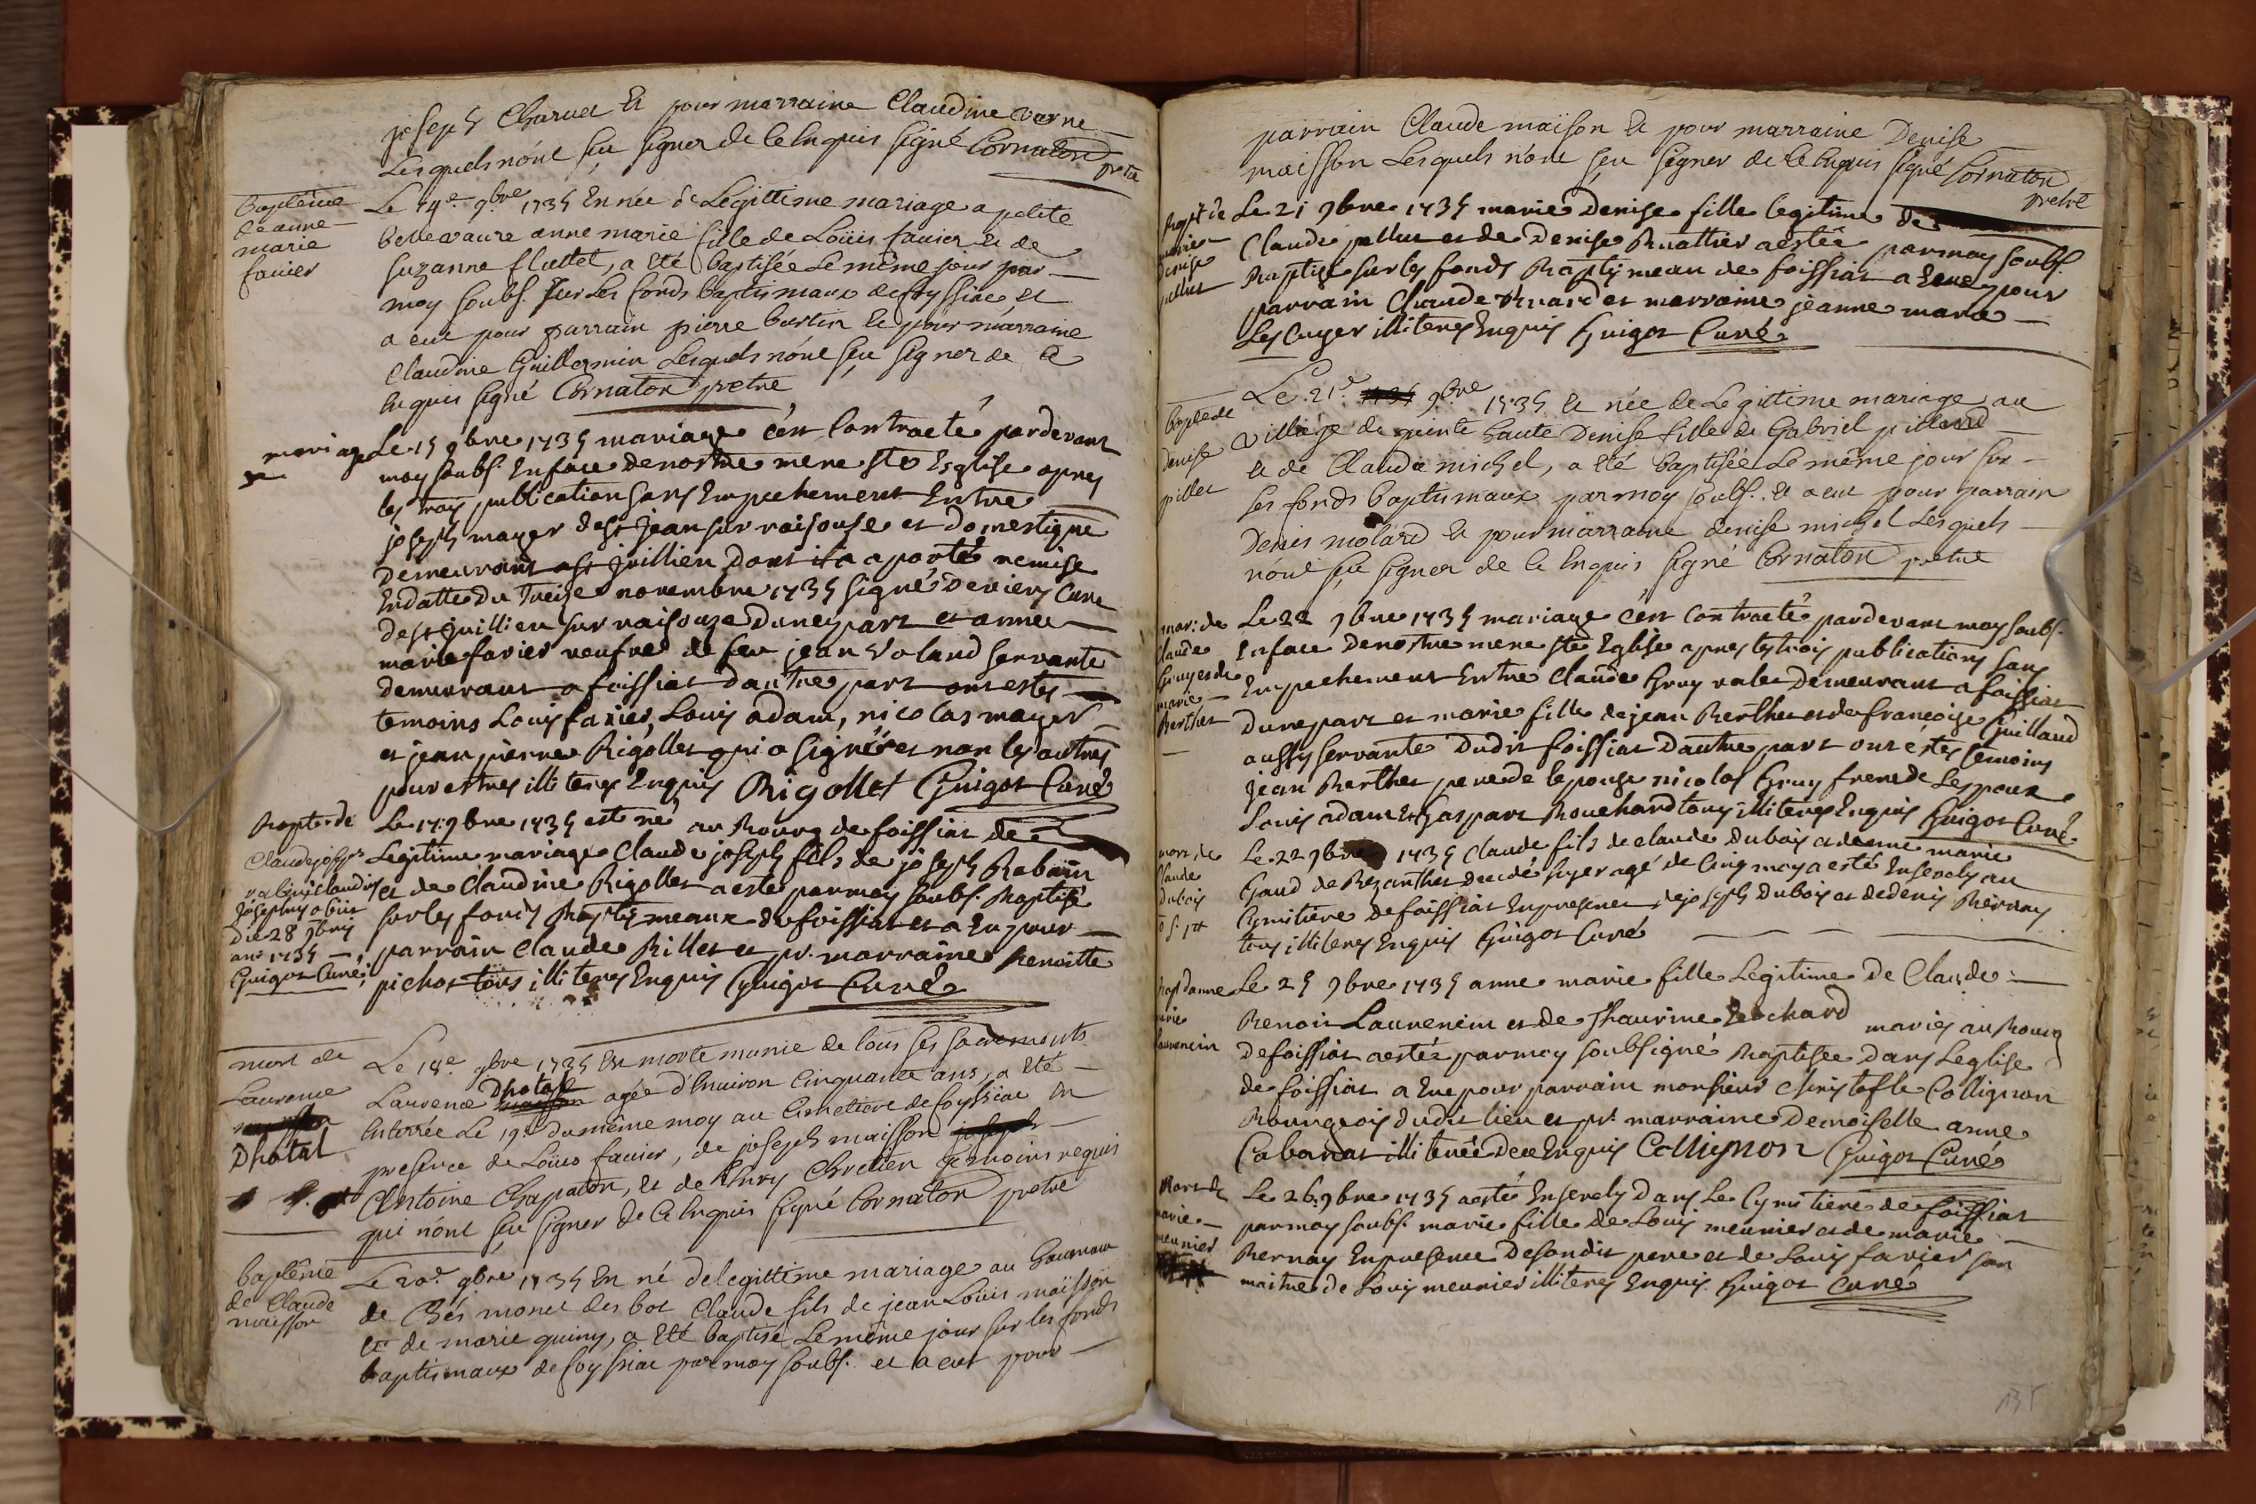 joseph Charvet Et pour marraine Claudine varne
Lesquels n'ont sçu signer de Ce Enquis signé Cornaton
pretre
baptême
de anne
marie
favier
Le 14e 9bre 1735 Est née de Legittime mariage a petite
bellevavre anne marie fille de Loüis favier et de
suzanne fluttet, a été baptisée Le même jour par
moy soubs. sur Les fonds baptismaux de foyssiac et
a eut pour parrain pierre burtin et pour marraine
Claudine Guillermin Lesquels n'ont sçu signer de Ce
Enquis signé Cornaton pretre
mariage
Le 15 9bre 1735 mariage c'est Contracté pardevant
moy soubs. Enface denostre mere ste Esglise apres
les trois publication sans Empechement Entre
joseph mayer de st jean sur raisouse et domestique
demeurant a st juillien dont il a aporté remise
Endatte du Treize novembre 1735 signé deviers Curé
de st juillien sur raisouze dune part et anne
marie favier veufve de feu jean Voland servante
demeurant a foissiat dautre part ont estés
temoins Louis favier, Louis adam, nicolas mayer
et jean pierre Rigollet qui a signé et non les autres
pour estres illiteres Enquis Rigollet Guigot Curé
Bapt. de
Claude joseph
rabin Claudius
Josephus obiit
die 28 9bris
an° 1735
Guigot Curé
Le 17 9bre 1735 est né au Bourg de foissiat de
Legitime mariage Claude joseph fils de joseph Rabuin
et de Claudine Rigollet a esté par moy soubs. Baptisé
sur les fonds Baptismeaux de foissiat et a Eu pour
parrain Claude Rillet et pr. marraine Benoitte
pichot tous illiteres Enquis Guigot Curé
mort de
Laurence
Dhotal
Le 18e 9bre 1735 Est morte munie de tous ses sacrements
Laurence Dhotal agée d'Environ Cinquante ans, a été
Enterrée Le 19e du même moy au Cimetiere de foyssiac En
presence de Loüis favier, de joseph maisson
Antoine Chapaton, et de Cury Chretien temoins requis
qui n'ont sçu signer de Ce Enquis signé Cornaton pretre
baptême
de Claude
maisson
Le 20e 9bre 1735 Est né delegittime mariage au hameau
de Chés monet des bot Claude fils de jean Loüis maïsson
et de marie quiny, a été baptisé Le même jour sur les fonds
baptismaux de foyssiac par moy soubs. et a eut pour
parrain Claude maïson et pour marraine Denise
maisson Lesquels n'ont sçu signer de Ce Enquis signé Cornaton
pretre
Bapt de
marie
denise
pellet
Le 21 9bre 1735 marie denise fille legitime de
Claude pellet et de Denise Buattier a estée par moy soubs.
Baptisé sur les fonds Baptismeau de foissiat a Eeue pour
parrain Claude et marraine jeanne marie
Lescuyer illiteres Enquis Guigot Curé
bapt de
denise
pillet
Le 21e 9bre 1735 Et née de Legittime mariage au
village de pointe haute Denise fille de Gabriel pilland
et de Claudie michel, a été baptisée Le même jour sur
les fonds baptismaux par moy soubs. et a eut pour parrain
Denis molard et pour marraine denise michel Lesquels
n'ont sçu signer de Ce Enquis signé Cornaton pretre
mar: de
Claude
Gruy et de
marie
Berthet
Le 22 9bre 1735 mariage c'est Contracté pardevant moy soubs.
Enface denostre mere ste Eglise apres les trois publications sans
Empechement Entre Claude Gruy valet demeurant a foissiat
dune part et marie fille de jean Berthet et de françoise Guilland
aussy servante dudit foissiat dautre part ont estés temoins
jean Berthet pere de lepouze nicolas Gruy frere de Lespoux
Louis adam Et Gaspart Bouchard tous illiteres Enquis Guigot Curé
mort de
Claude
dubois
Le 22 9bre 1735 Claude fils de claude dubois adeenne marie
Gaud de Bezanthet decedé hyer agé de Cinq moy a esté Ensevely au
Cymitiere de foissiat Enpresence de joseph dubois et de denis Bernay
tous illiteres Enquis Guigot Curé
Bapt danne
marie
Laurencin
Le 25 9bre 1735 anne marie fille Legitime de Claude
Benoit Laurencin et de Thaurine Bochard mariés au Bourg
de foissiat a estée par moy soubsigné Baptisée dans Leglise
de foissiat a Eue pour parrain monsieur Christofle Collignon
Bourgeois dudit lieu et pr. marraine Demoiselle anne
Cabanat illiterée deee Enquis Collignon Guigot Curé
Mort de
marie
meunier
Le 26 9bre 1735 a esté Ensevely dans Le Cymitiere de foissiat
par moy soubs. marie fille de Louis meunier et de marie
Bernay Enpresence desondit pere et de Louis favier son
maitre de Louis meunier illiteres Enquis Guigot Curé
135